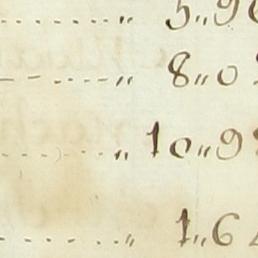 〃 5〃9
〃 8〃0
〃 10〃9
〃 1〃6